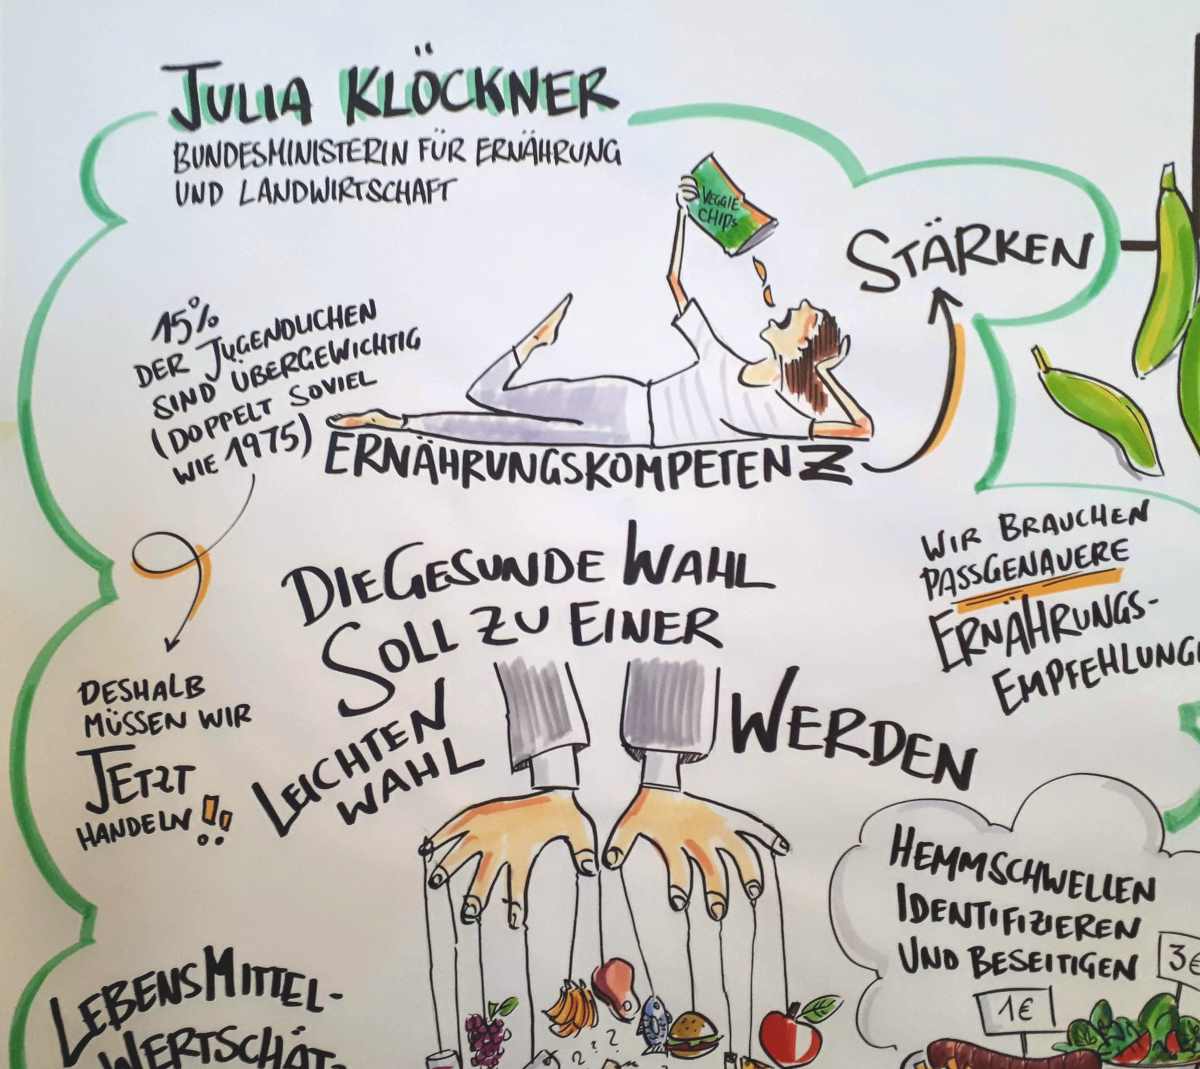 JULIA KLÖCKNER
BUNDESMINISTERIN FÜR ERNÄHRUNG
UND LANDWIRTSCHAFT
VEGGIE
CHIPS
STÄRKEN
15%
DER JUGENDLICHEN
SIND ÜBERGEWICHTIG
(DOPPELT SOVIEL
WIE 1975)
ERNÄHRUNGSKOMPETENZ
WIR BRAUCHEN
PASSGENAUERE
ERNÄHRUNGS-
EMPFEHLUNG
DIE GESUNDE WAHL
SOLL ZU EINER
LEICHTEN
WAHL
WERDEN
DESHALB
MÜSSEN WIR
JETZT
HANDELN!!
HEMMSCHWELLEN
IDENTIFIZIEREN
UND BESEITIGEN
3€
1€
LEBENSMITTEL-
WERTSCHÄT-
? ? ?